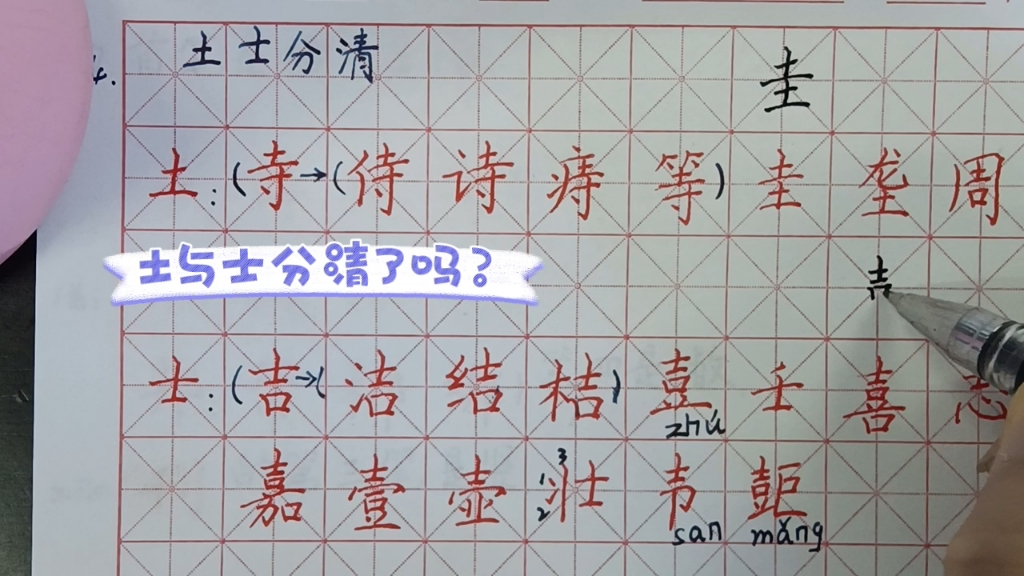 4. 土士分清
圭
土:(寺→(侍 诗 痔 等) 圭 垄 周
土与士分清了吗?
士:(吉→(洁 结 桔) 壴 壬 喜 志
zhú
嘉 壹 壶 壮
3
1
2
san mǎng